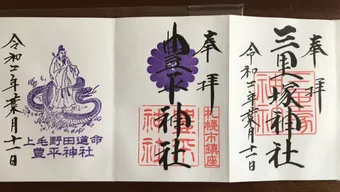 奉拝
三里塚神社
令和二年葉月十一日
奉拝
豊平神社
札幌市鎮座
豊平神社
上毛野田道命
豊平神社
令和二年葉月十一日